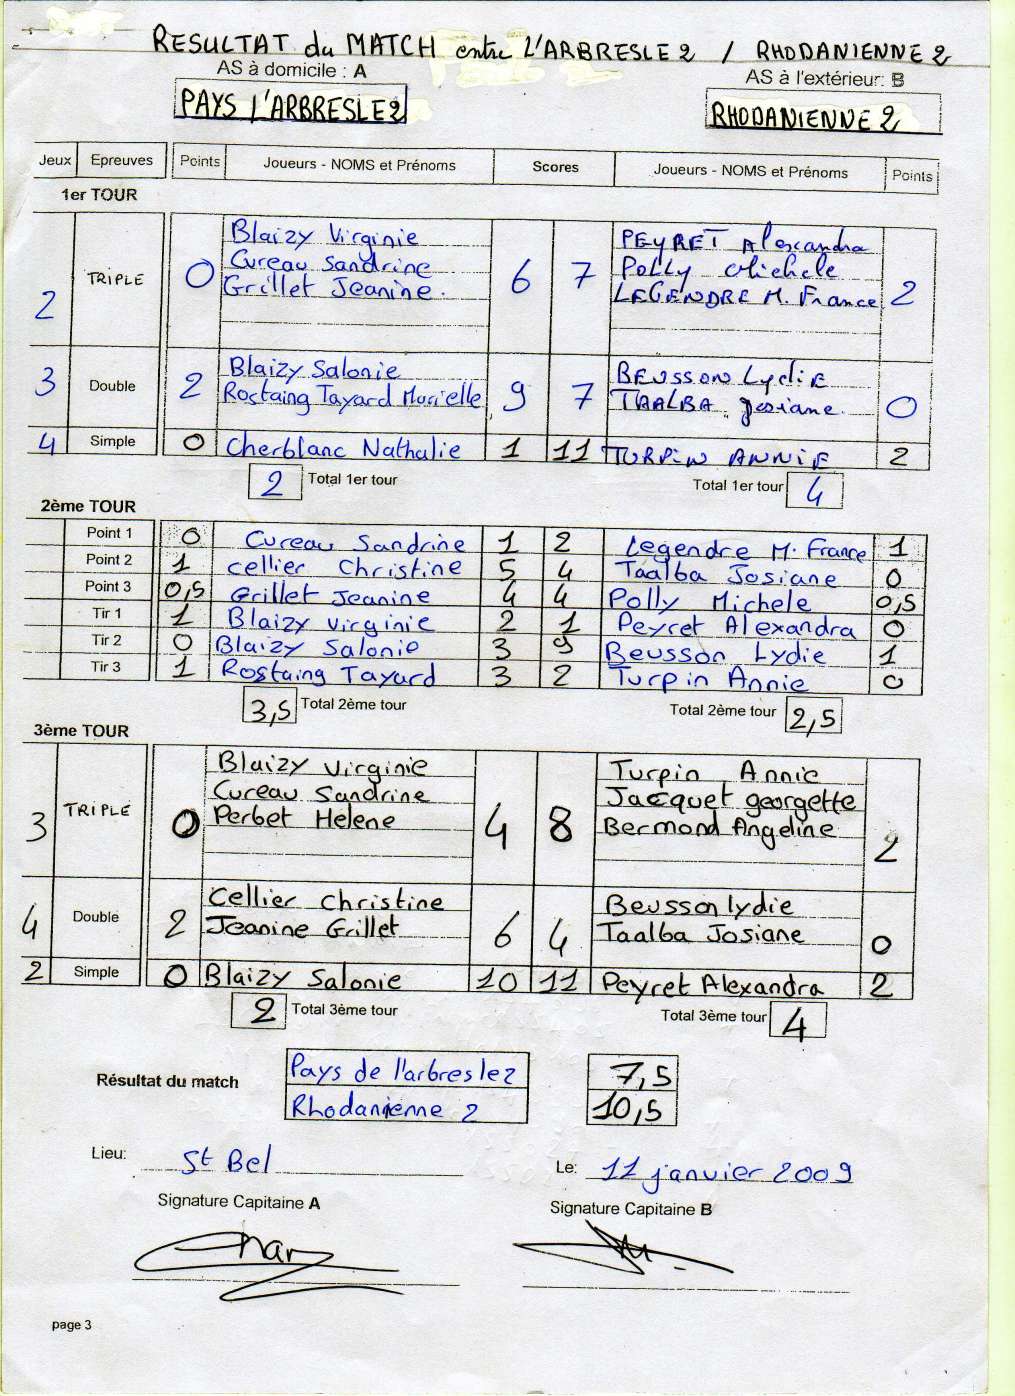 RESULTAT du MATCH entre L'ARBRESLE 2 / RHODANIENNE 2
AS à domicile : A AS à l'extérieur: B
PAYS L'ARBRESLE 2 RHODANIENNE 2
Jeux Epreuves Points Joueurs - NOMS et Prénoms Scores Joueurs - NOMS et Prénoms Points
1er TOUR
Blaizy Virginie PEYRET Alexandra
2 TRIPLE 0 Cureau Sandrine 6 7 Polly Michele 2
Grillet Jeanine. LEGENDRE M. France
3 Double 2 Blaizy Salonie 9 7 BEUSSON Lydie 0
Rostaing Tayard Murielle TAALBA Josiane.
4 Simple 0 Cherblanc Nathalie 1 11 TURPIN ANNIE 2
2 Total 1er tour Total 1er tour 4
2ème TOUR
Point 1 0 Cureau Sandrine 1 2 Legendre M. France 1
Point 2 1 Cellier Christine 5 4 Taalba Josiane 0
Point 3 0,5 Grillet Jeanine 4 4 Polly Michele 0,5
Tir 1 1 Blaizy Virginie 2 1 Peyret Alexandra 0
Tir 2 0 Blaizy Salonie 3 9 Beusson Lydie 1
Tir 3 1 Rostaing Tayard 3 2 Turpin Annie 0
3,5 Total 2ème tour Total 2ème tour 2,5
3ème TOUR
Blaizy Virginie Turpin Annie
3 TRIPLE 0 Cureau Sandrine 4 8 Jacquet georgette 2
Perbet Helene Bermond Angeline
4 Double 2 Cellier Christine 6 4 Beusson lydie 0
Jeanine Grillet Taalba Josiane
2 Simple 0 Blaizy Salonie 10 11 Peyret Alexandra 2
2 Total 3ème tour Total 3ème tour 4
Résultat du match Pays de l'arbresle 2 7,5
Rhodanienne 2 10,5
Lieu: St Bel Le: 11 janvier 2009
Signature Capitaine A Signature Capitaine B
page 3